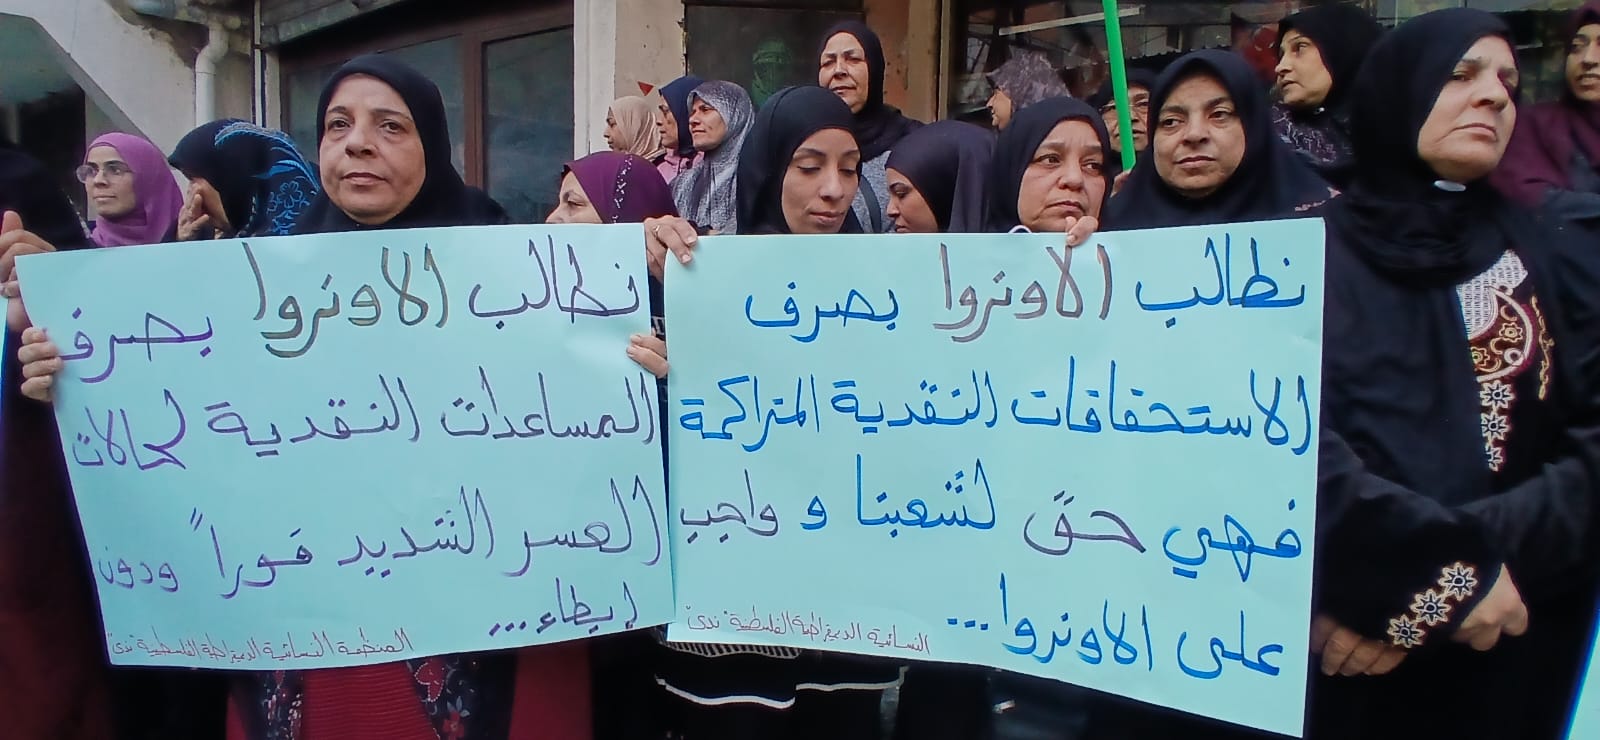 نطالب الاونروا بصرف
الاستحقاقات النقدية المتراكمة
فهي حق لشعبنا و واجب
على الاونروا...
النسائية الديمقراطية الفلسطينية "ندى"
نطالب الاونروا بصرف
المساعدات النقدية لحالات
العسر الشديد فوراً ودون
إبطاء...
المنظمة النسائية الديمقراطية الفلسطينية "ندى"